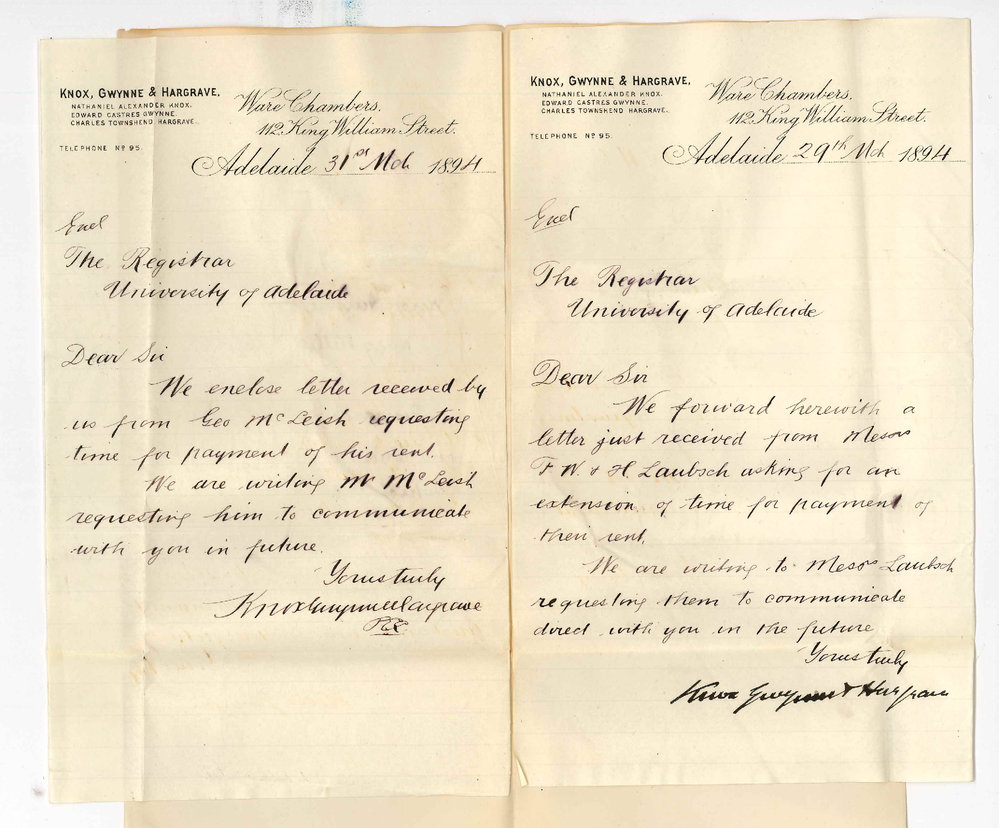 KNOX, GWYNNE & HARGRAVE,
NATHANIEL ALEXANDER KNOX.
EDWARD CASTRES GWYNNE.
CHARLES TOWNSHEND HARGRAVE.
TELEPHONE Nº 95.
Ware Chambers,
112, King William Street.
Adelaide 31st Mch 1894
Encl
The Registrar
University of Adelaide
Dear Sir
We enclose letter received by
us from Geo McLeish requesting
time for payment of his rent.
We are writing Mr McLeish
requesting him to communicate
with you in future.
Yours truly
Knox Gwynne & Hargrave
KNOX, GWYNNE & HARGRAVE,
NATHANIEL ALEXANDER KNOX.
EDWARD CASTRES GWYNNE.
CHARLES TOWNSHEND HARGRAVE.
TELEPHONE Nº 95.
Ware Chambers,
112, King William Street.
Adelaide 29th Mch 1894
Encl
The Registrar
University of Adelaide
Dear Sir
We forward herewith a
letter just received from Messrs
F W & H Laubsch asking for an
extension of time for payment of
their rent.
We are writing to Messrs Laubsch
requesting them to communicate
direct with you in the future
Yours truly
Knox Gwynne & Hargrave